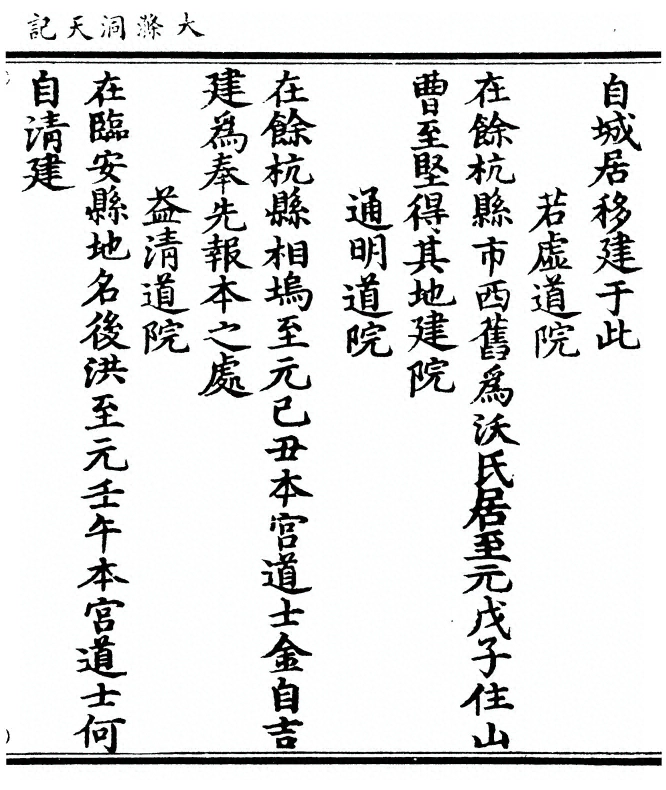 大滌洞天記
自城居移建于此
若虛道院
在餘杭縣市西舊為沃氏居至元戊子住山
曹至堅得其地建院
通明道院
在餘杭縣相塢至元己丑本宮道士金自吉
建為奉先報本之處
益清道院
在臨安縣地名後洪至元壬午本宮道士何
自清建